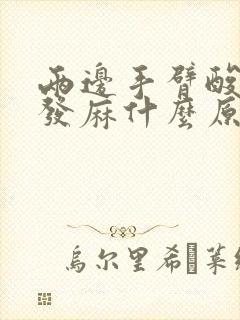 兩邊手臂酸
發麻什麼原
烏尔里希 葉